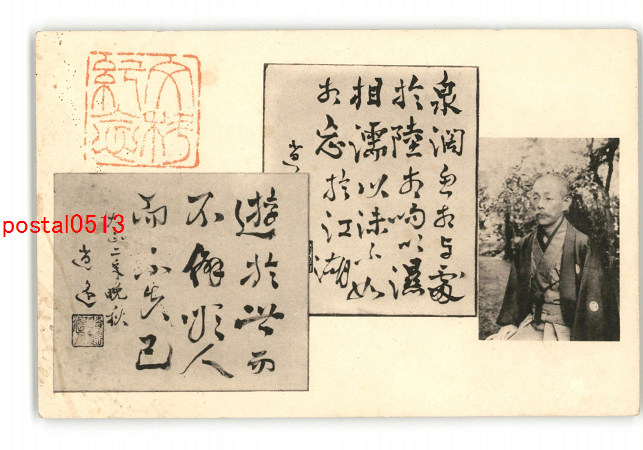 泉涸魚相与處
於陸相呴以濕
相濡以沫不如
相忘於江湖
遊於世而
不僻順人
而不失己
大正二年晩秋
逍遥
postal0513